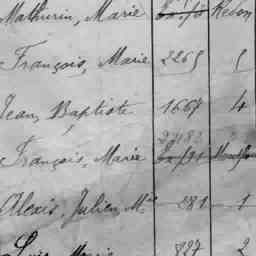 Mathurin, Marie Redon
François, Marie 2265 5
Jean, Baptiste 1667 4
François, Marie
Alexis, Julien, Mie 281 1
827 2